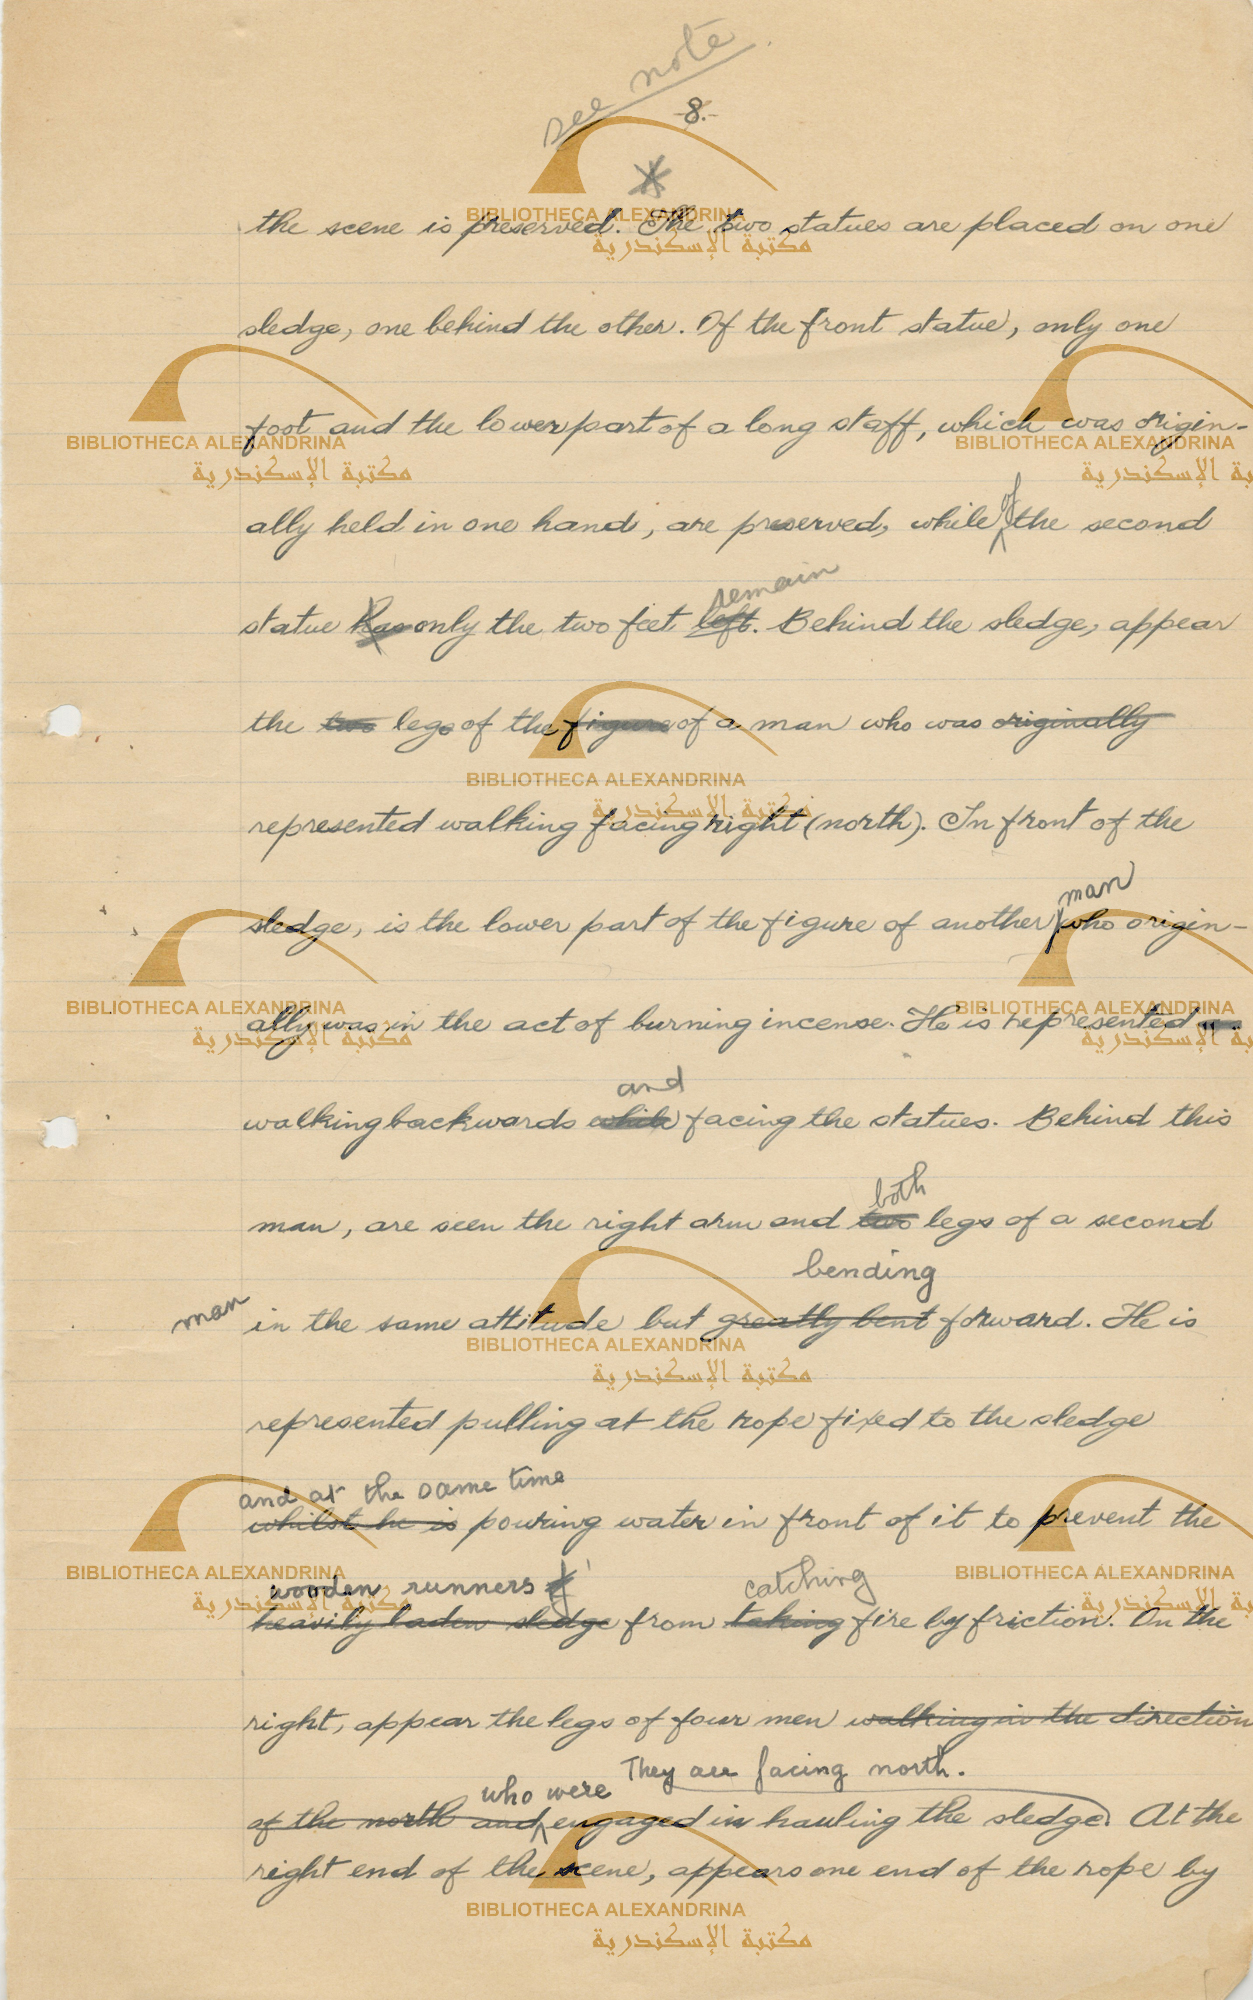 see note
-8.-
the scene is preserved. * The two statues are placed on one
sledge, one behind the other. Of the front statue, only one
foot and the lower part of a long staff, which was origin-
of
ally held in one hand, are preserved, while the second
remain
statue has only the two feet left. Behind the sledge, appear
the two legs of the figure of a man who was originally
represented walking facing right (north). In front of the
man
sledge, is the lower part of the figure of another who origin-
ally was in the act of burning incense. He is represented
and
walking backwards while facing the statues. Behind this
both
man, are seen the right arm and two legs of a second
bending
man in the same attitude but greatly bent forward. He is
represented pulling at the rope fixed to the sledge
and at the same time
whilst he is pouring water in front of it to prevent the
wooden runners catching
heavily laden sledge from taking fire by friction. On the
right, appear the legs of four men walking in the direction
who were They are facing north.
of the north and engaged in hauling the sledge. At the
right end of the scene, appears one end of the rope by
BIBLIOTHECA ALEXANDRINA
مكتبة الإسكندرية